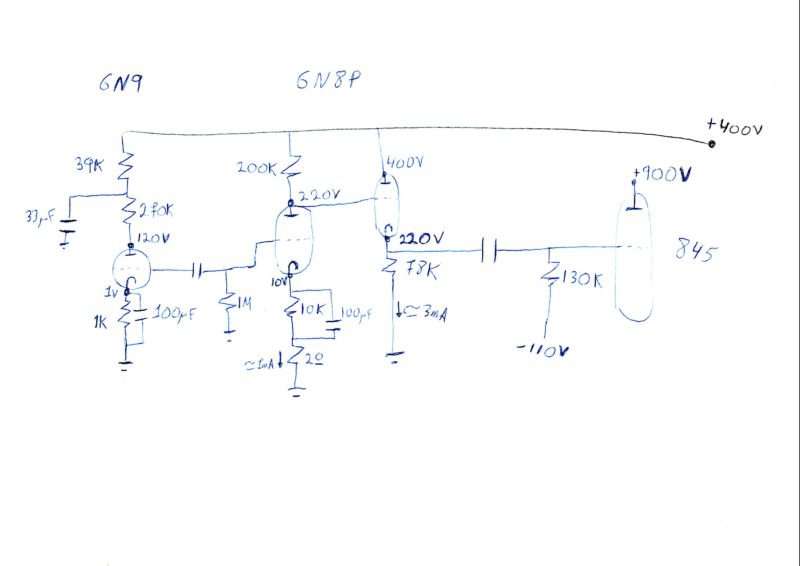 6N9 6N8P
+400V
39K 200K 400V
+900V
33µF 270K 220V
120V 220V 845
1V 10V 78K 130K
1K 100µF 1M 10K 100µF ≃3mA
≃1mA 2Ω -110V